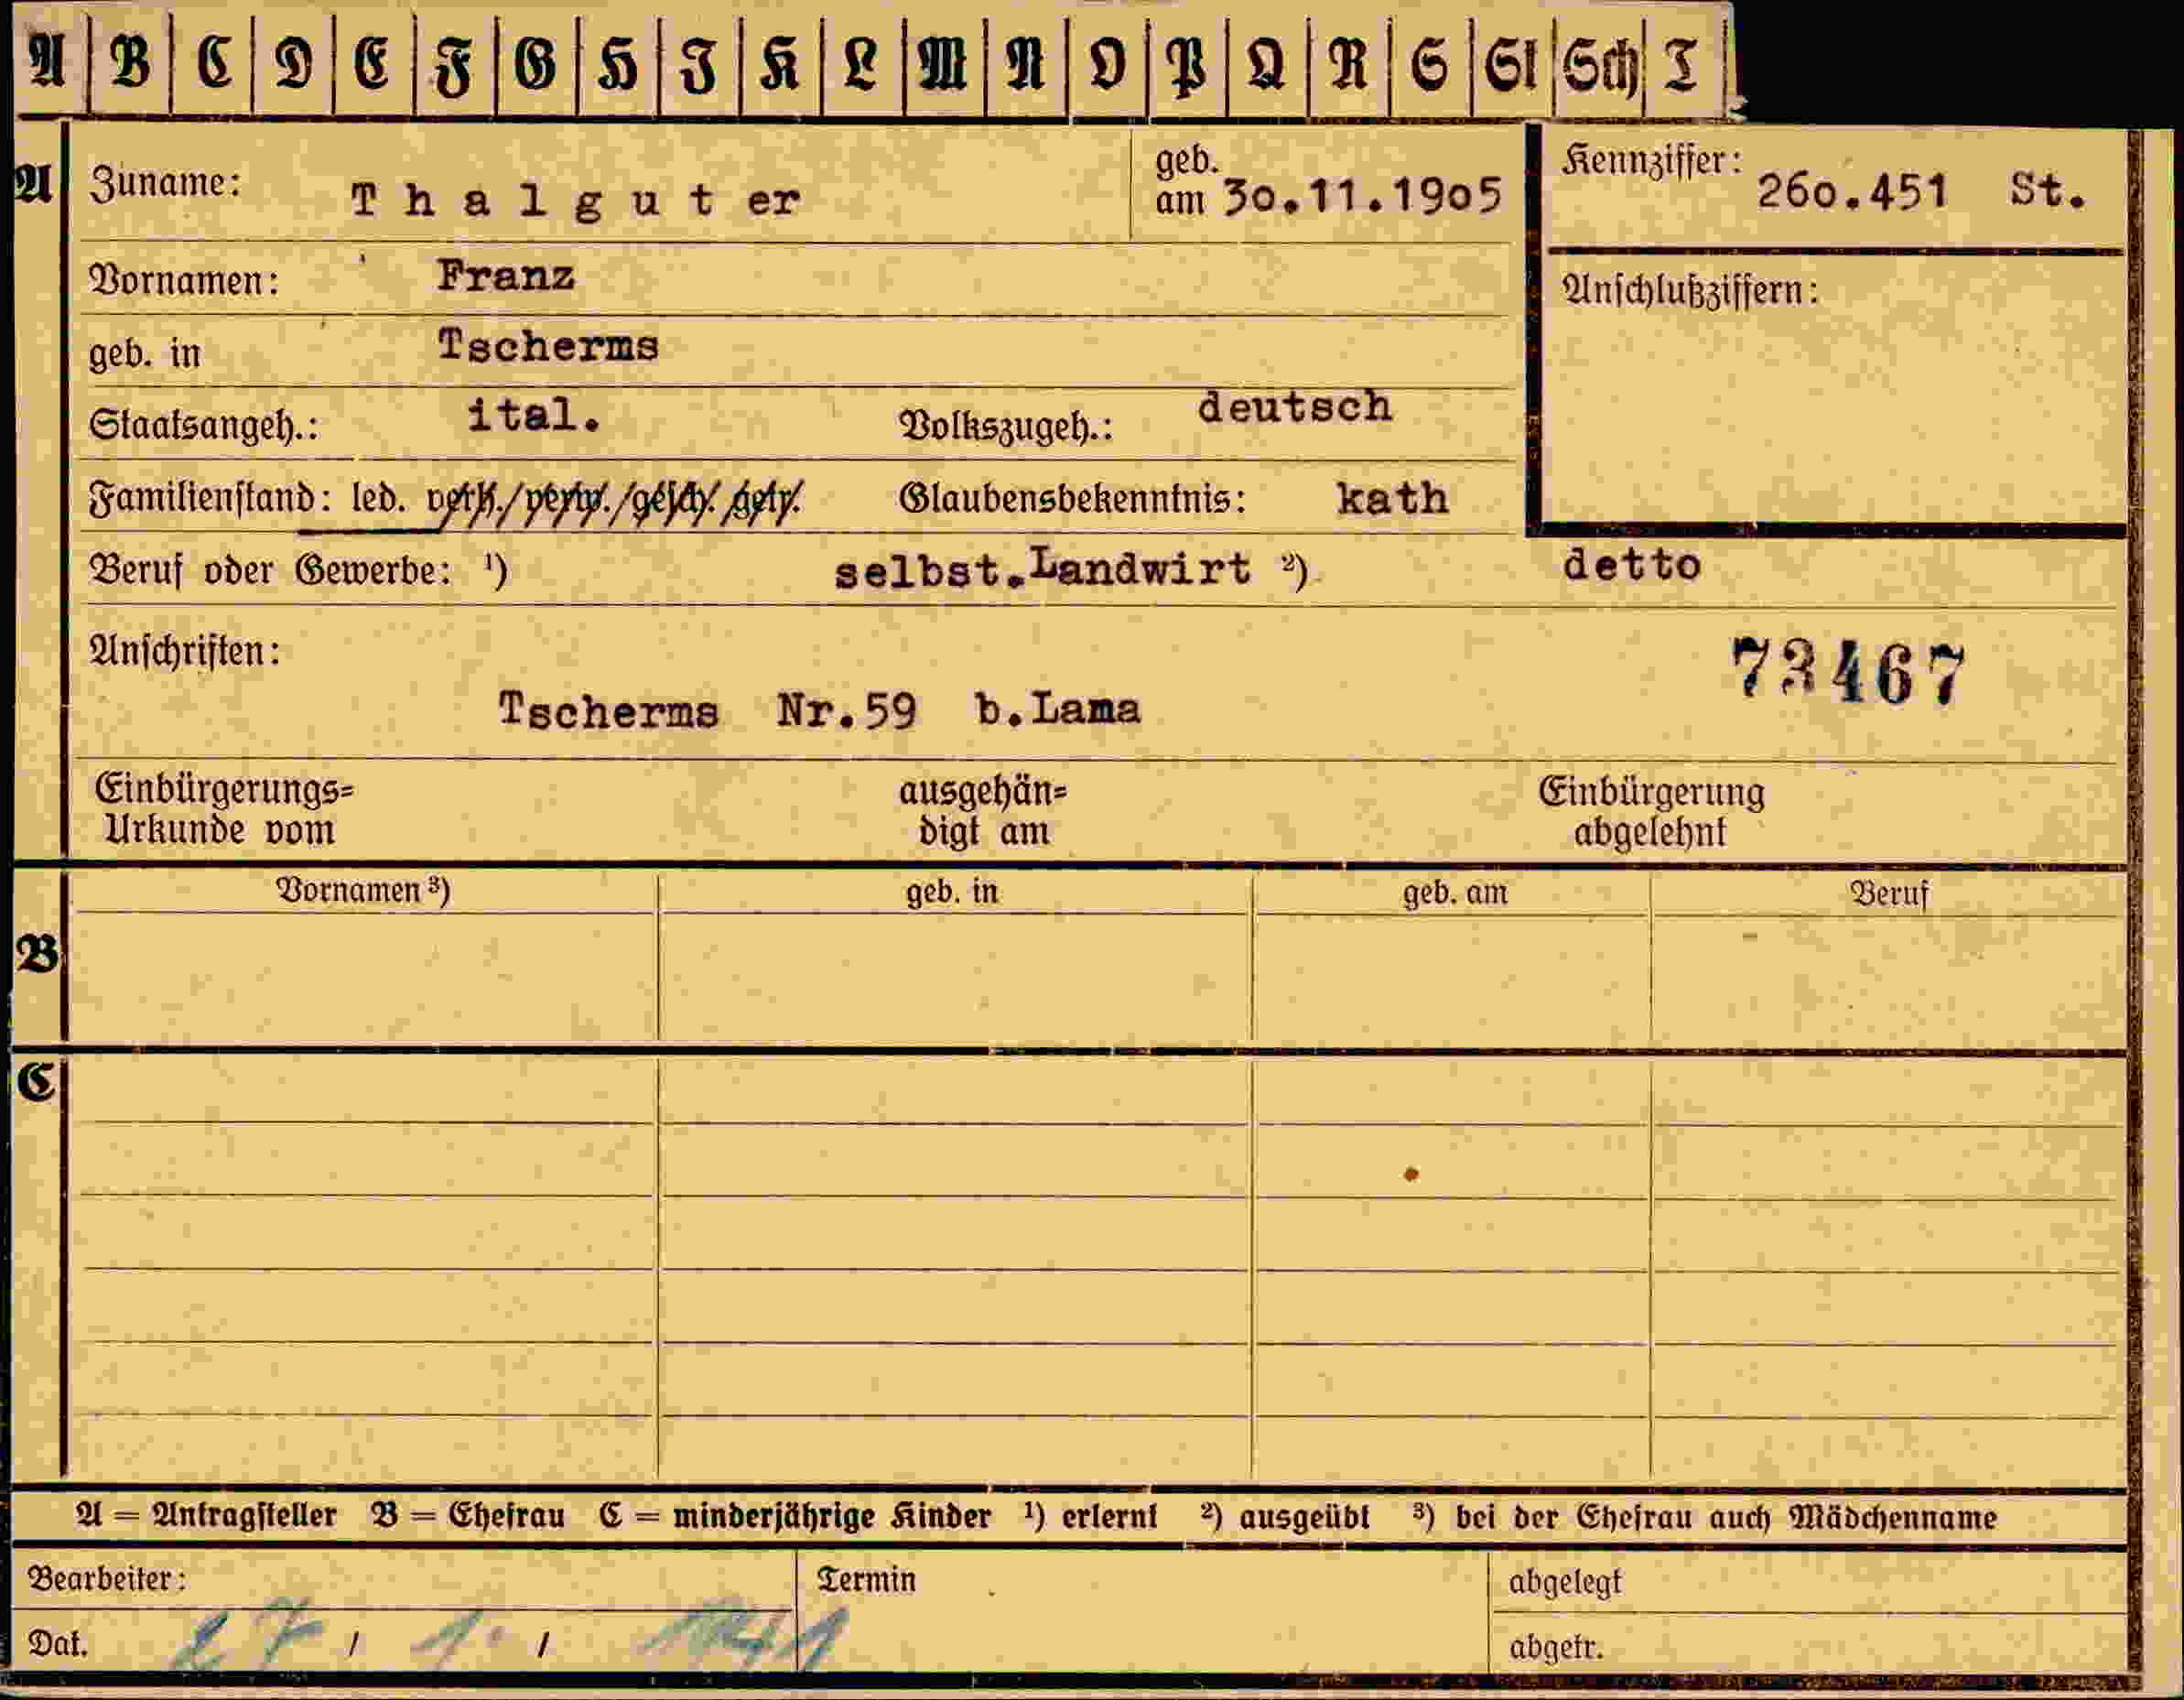 A B C D E F G H J K L M N O P Q R S St Sch T
A Zuname: Thalguter geb. am 30.11.1905 Kennziffer: 260.451 St.
Vornamen: Franz Anschlußziffern:
geb. in Tscherms
Staatsangeh.: ital. Volkszugeh.: deutsch
Familienstand: led. verh./verw./gesch./getr. Glaubensbekenntnis: kath
Beruf oder Gewerbe: ¹) selbst.Landwirt ²) detto
Anschriften: 73467
Tscherms Nr.59 b.Lama
Einbürgerungs= ausgehän= Einbürgerung
Urkunde vom digt am abgelehnt
Vornamen ³) geb. in geb. am Beruf
B
C
A = Antragsteller B = Ehefrau C = minderjährige Kinder ¹) erlernt ²) ausgeübt ³) bei der Ehefrau auch Mädchenname
Bearbeiter: Termin abgelegt
Dat. 27 / 1. / 1941 abgetr.